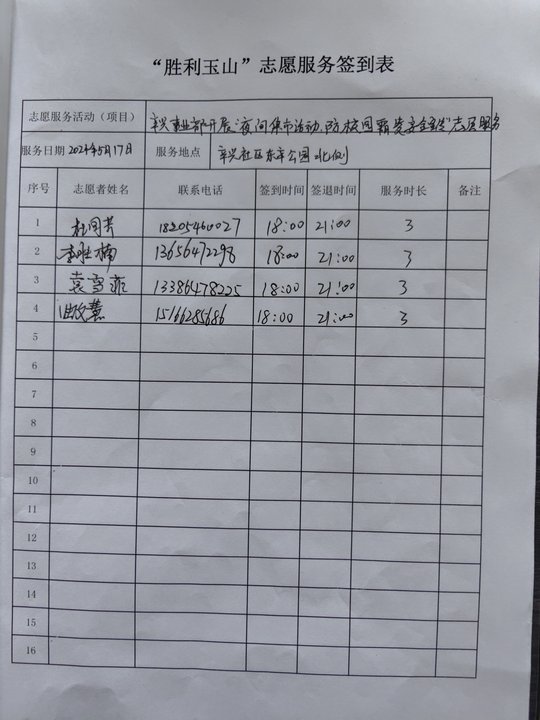 “胜利玉山”志愿服务签到表
志愿服务活动（项目） 辛兴事业部开展“夜间集市活动,防校园霸凌 志愿服务
服务日期 2024年5月17日 服务地点 辛兴社区东辛公园北侧
序号 志愿者姓名 联系电话 签到时间 签退时间 服务时长 备注
1 杜同芳 18205460027 18:00 21:00 3
2 李胜楠 13656472298 18:00 21:00 3
3 袁雪菲 13386478225 18:00 21:00 3
4 慧 15166285686 18:00 21:00 3
5
6
7
8
9
10
11
12
13
14
15
16